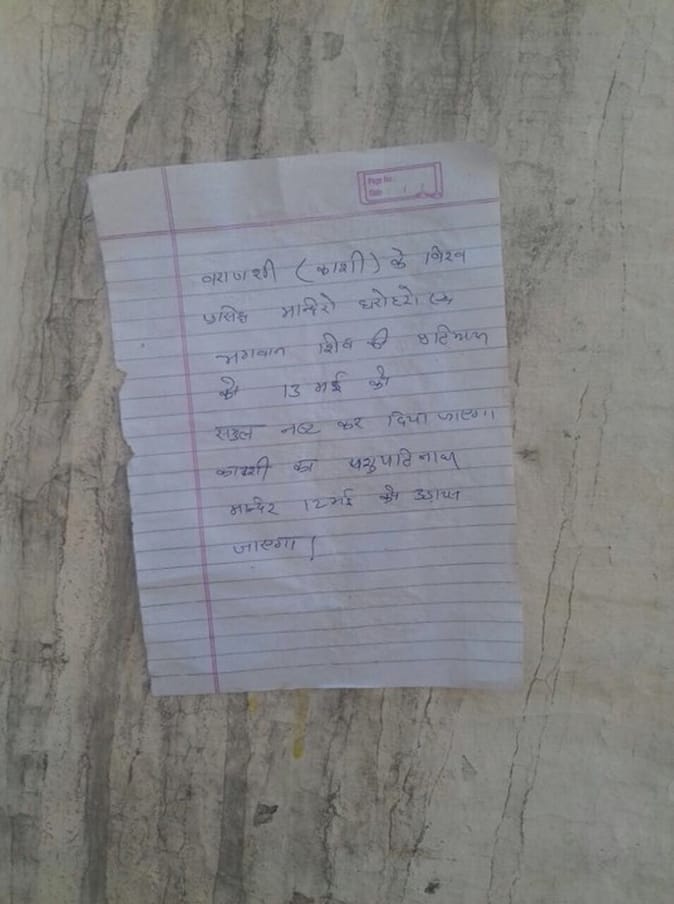 Page No.
Date
वाराणशी (काशी) के विश्व
प्रसिद्ध मन्दिरो धरोहरो एवं
भगवान शिव की
को 13 मई को
नष्ट कर दिया जाएगा।
काशी का पशुपतिनाथ
मन्दिर 12 मई को उड़ाया
जाएगा।